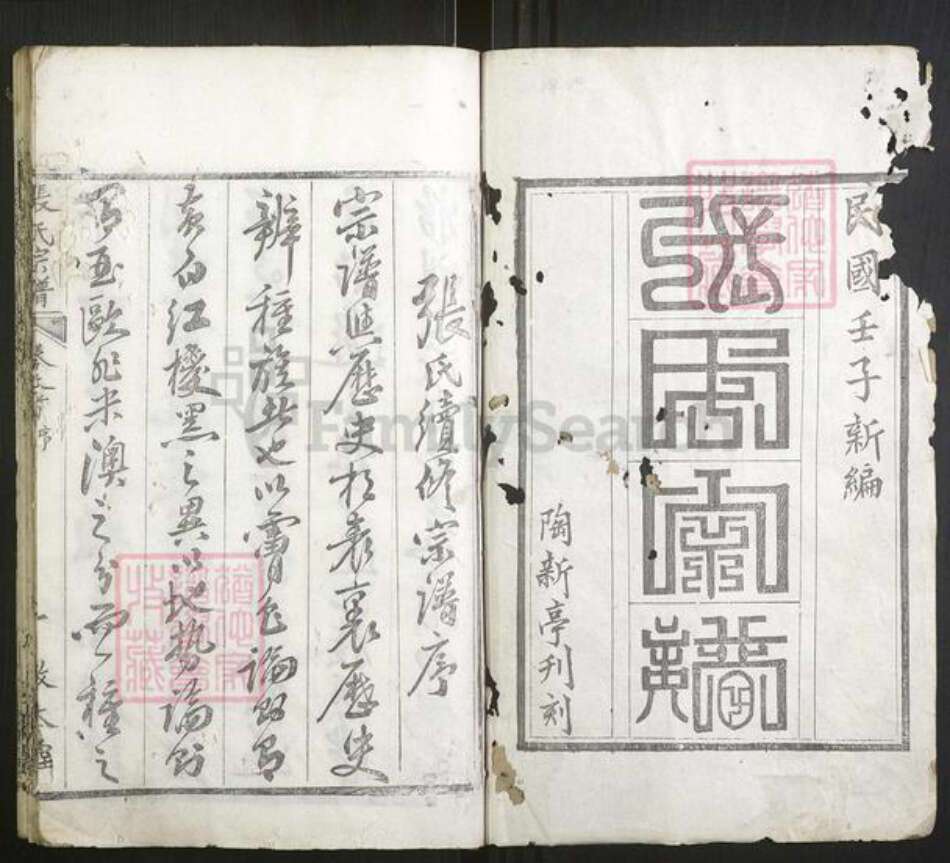 民國壬子新編
張氏宗譜
陶新亭刊刻
張氏續修宗譜序
宗譜與歷史相表裏歷史
辨種族者也以膚色論則有
黃白紅椶黑之異以地勢論則
有亞歐非米澳之分而一種之
張氏宗譜
卷之首 序
一
敦本堂
FamilySearch